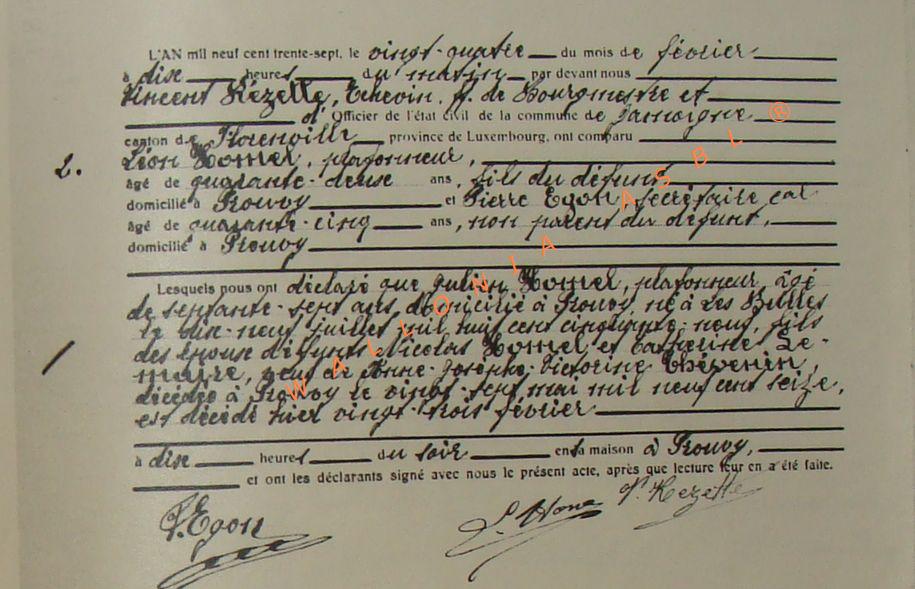 L'AN mil neuf cent trente-sept, le vingt-quatre du mois de février
à dix heures du matin par devant nous
Vincent Rézette, Echevin, ff. de Bourgmestre et
d' Officier de l'état civil de la commune de Jamoigne
canton de Florenville province de Luxembourg, ont comparu
2. Léon Homel, plafonneur,
âgé de quarante-deux ans, fils du défunt
domicilié à Prouvy et Pierre Egon, secrétaire
âgé de quarante-cinq ans, non parent du défunt,
domicilié à Prouvy
Lesquels nous ont déclaré que Julien Homel, plafonneur, âgé
de septante-sept ans domicilié à Prouvy, né à Les Bulles
le dix-neuf juillet mil huit cent cinquante-neuf, fils
des époux défunts Nicolas Homel et Catherine Le-
maire, veuf de Anne-Josèphe-Victorine Thévenin,
décédée à Prouvy le vingt-sept mai mil neuf cent seize,
est décédé hier vingt-trois février
à dix heures du soir en sa maison à Prouvy,
et ont les déclarants signé avec nous le présent acte, après que lecture leur en a été faite.
P. Egon
WALLONIA ASBL ®